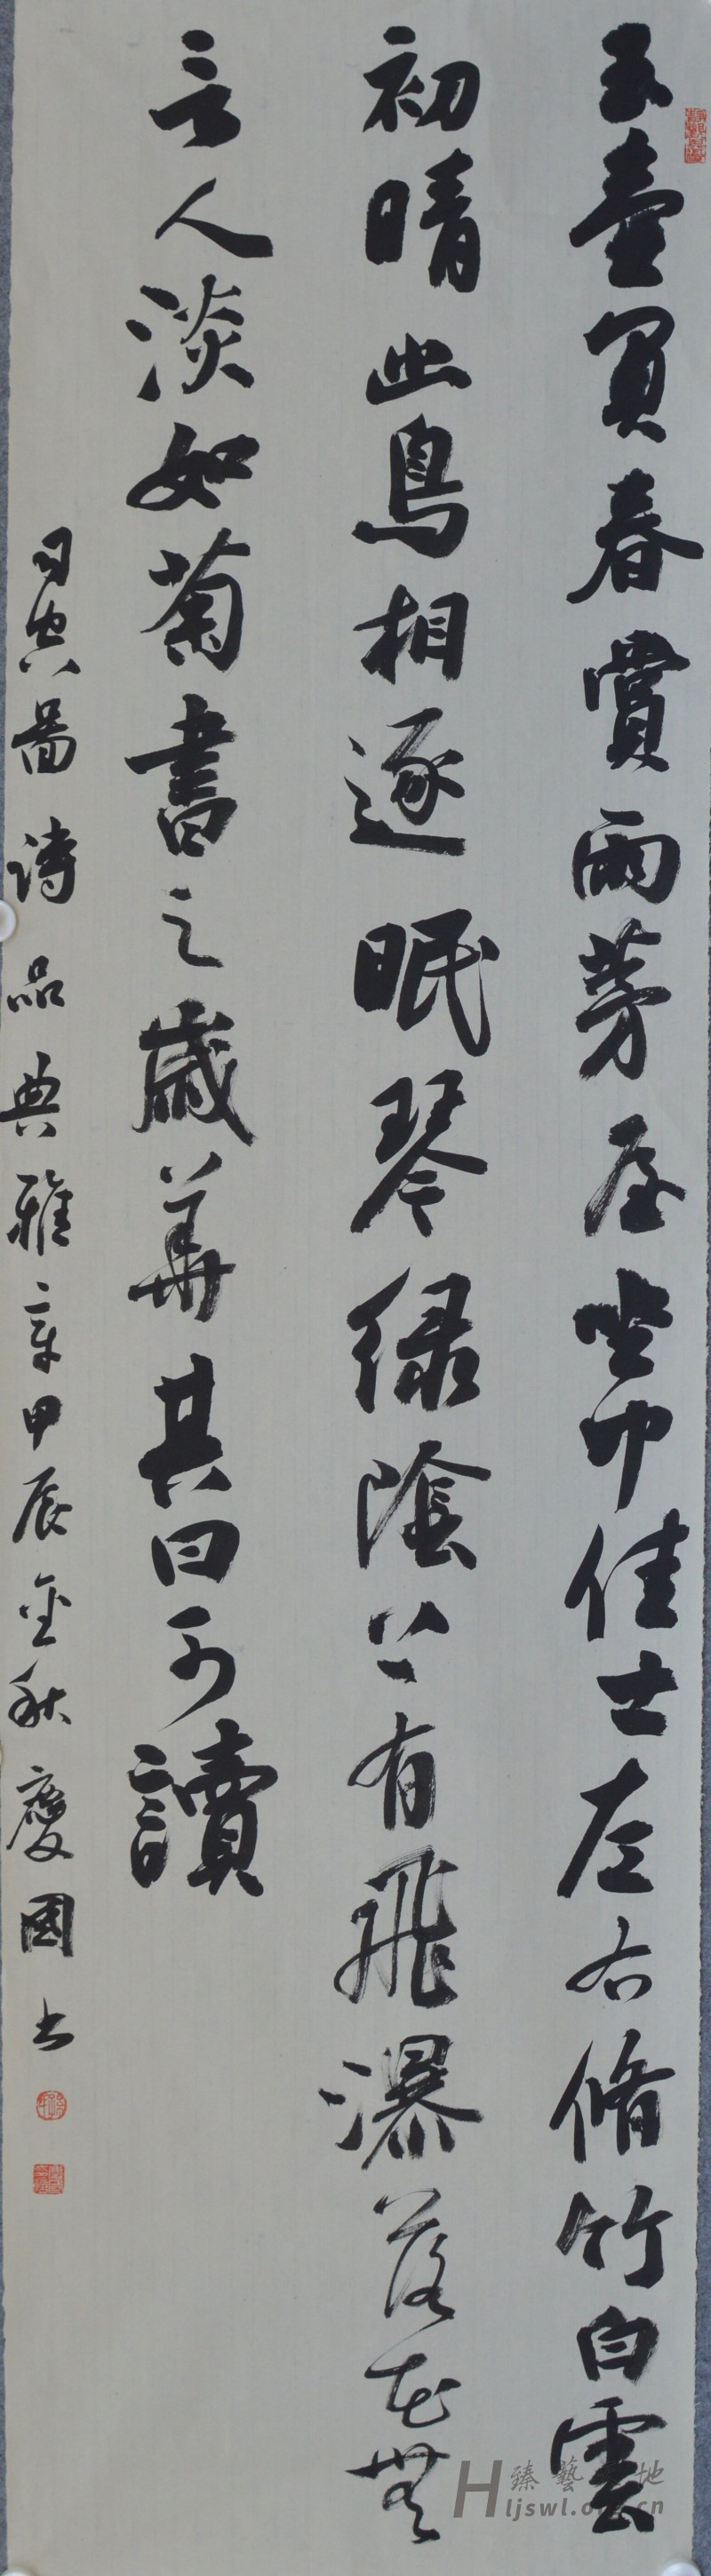 玉壺買春賞雨茆屋坐中佳士左右脩竹白雲
初晴幽鳥相逐眠琴綠陰上有飛瀑落花無
言人淡如菊書之歲華其曰可讀
司空圖詩品典雅章甲辰金秋慶國書
臻藝 地
Hljswl.org.cn